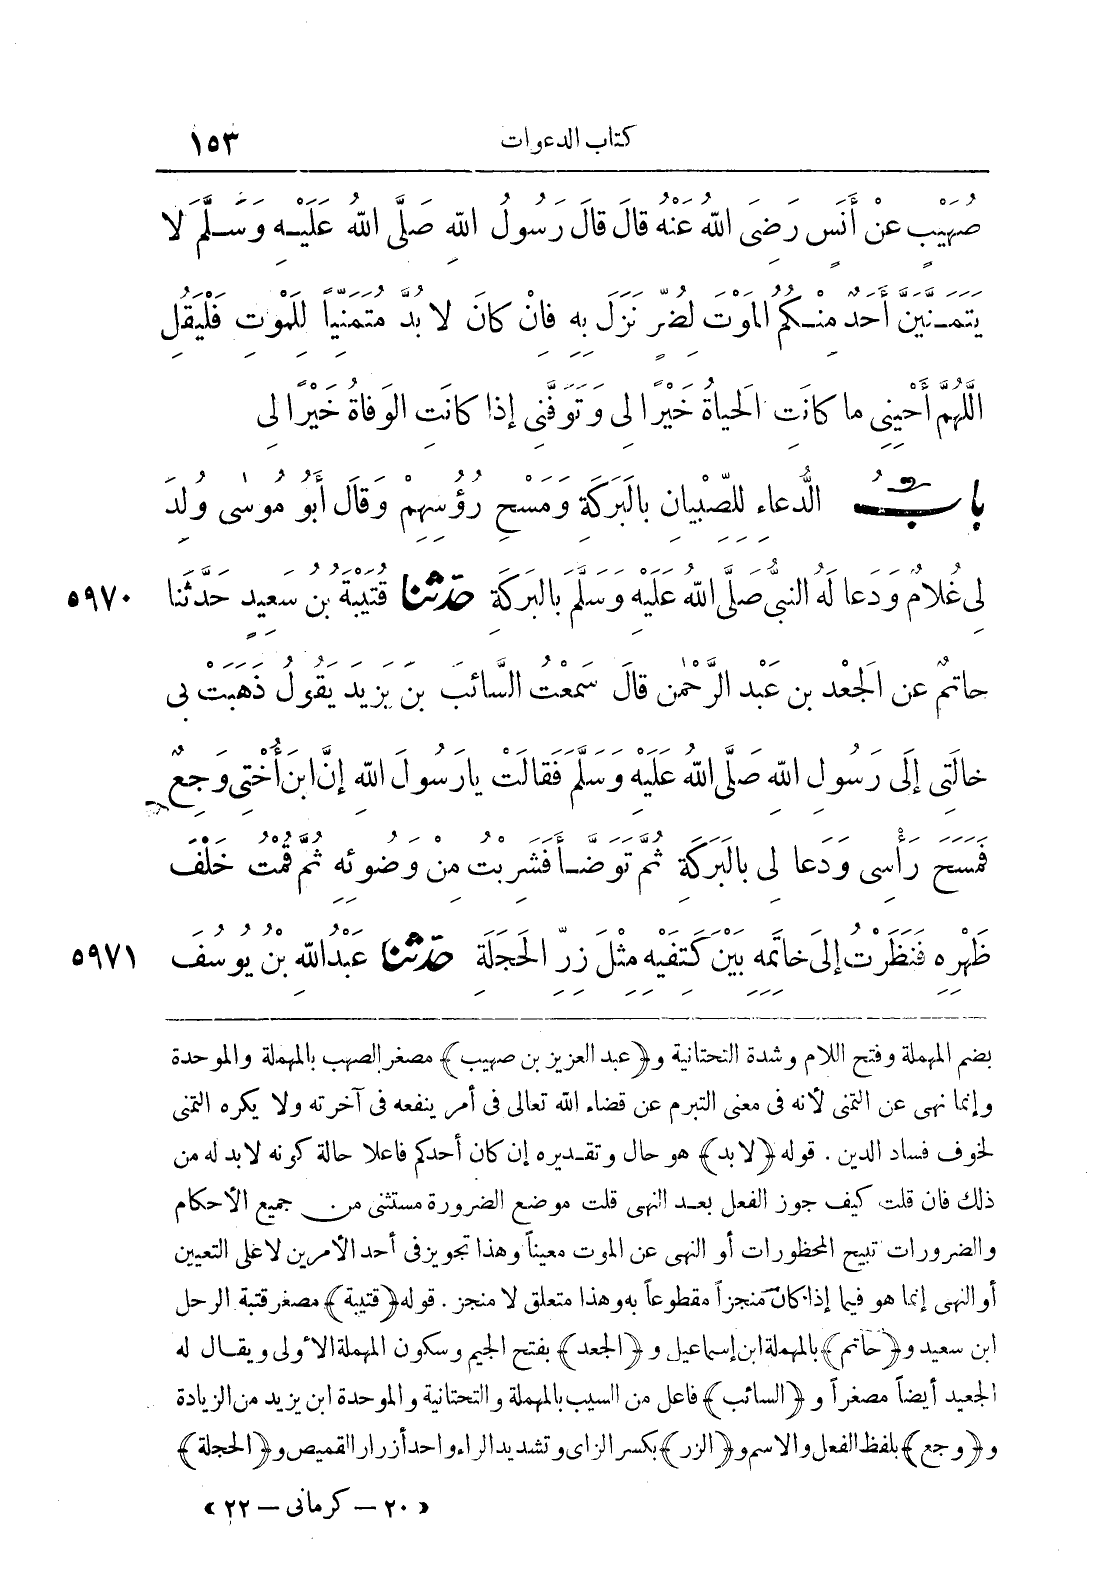 كتاب الدعوات ١٥٣
صُهَيْبٍ عَنْ أَنَسٍ رَضِىَ اللهُ عَنْهُ قَالَ قَالَ رَسُولُ اللهِ صَلَّى اللهُ عَلَيْهِ وَسَلَّمَ لَا
يَتَمَنَّيَنَّ أَحَدٌ مِنْكُمُ الْمَوْتَ لِضُرٍّ نَزَلَ بِهِ فَانْ كَانَ لَا بُدَّ مُتَمَنِّيًا لِلْمَوْتِ فَلْيَقُلِ
اللَّهُمَّ أَحْيِنِى مَا كَانَتِ الْحَيَاةُ خَيْرًا لِى وَتَوَفَّنِى إِذَا كَانَتِ الْوَفَاةُ خَيْرًا لِى
بَابُ الدُّعَاءِ لِلصِّبْيَانِ بِالْبَرَكَةِ وَمَسْحِ رُؤُسِهِمْ وَقَالَ أَبُو مُوسَى وُلِدَ
لِى غُلَامٌ وَدَعَا لَهُ النَّبِىُّ صَلَّى اللهُ عَلَيْهِ وَسَلَّمَ بِالْبَرَكَةِ حَدَّثَنَا قُتَيْبَةُ بْنُ سَعِيدٍ حَدَّثَنَا ٥٩٧٠
حَاتِمٌ عَنِ الْجَعْدِ بْنِ عَبْدِ الرَّحْمٰنِ قَالَ سَمِعْتُ السَّائِبَ بْنَ يَزِيدَ يَقُولُ ذَهَبَتْ بِى
خَالَتِى إِلَى رَسُولِ اللهِ صَلَّى اللهُ عَلَيْهِ وَسَلَّمَ فَقَالَتْ يَا رَسُولَ اللهِ إِنَّ ابْنَ أُخْتِى وَجِعٌ
فَمَسَحَ رَأْسِى وَدَعَا لِى بِالْبَرَكَةِ ثُمَّ تَوَضَّأَ فَشَرِبْتُ مِنْ وَضُوئِهِ ثُمَّ قُمْتُ خَلْفَ
ظَهْرِهِ فَنَظَرْتُ إِلَى خَاتَمِهِ بَيْنَ كَتِفَيْهِ مِثْلَ زِرِّ الْحَجَلَةِ حَدَّثَنَا عَبْدُ اللهِ بْنُ يُوسُفَ ٥٩٧١
بضم المهملة وفتح اللام وشدة التحتانية و﴿عبد العزيز بن صهيب﴾ مصغر الصهب بالمهملة والموحدة
وإنما نهى عن التمنى لأنه فى معنى التبرم عن قضاء الله تعالى فى أمر ينفعه فى آخرته ولا يكره التمنى
لخوف فساد الدين . قوله ﴿لابد﴾ هو حال وتقديره إن كان أحدكم فاعلا حالة كونه لابد له من
ذلك فان قلت كيف جوز الفعل بعد النهى قلت موضع الضرورة مستثنى من جميع الأحكام
والضرورات تبيح المحظورات أو النهى عن الموت معيناً وهذا تجويز فى أحد الأمرين لا على التعيين
أو النهى إنما هو فيما إذا كان منجزاً مقطوعاً به وهذا متعلق لا منجز . قوله ﴿قتيبة﴾ مصغر قتبة الرحل
ابن سعيد و﴿حاتم﴾ بالمهملة ابن إسماعيل و ﴿الجعد﴾ بفتح الجيم وسكون المهملة الأولى ويقال له
الجعيد أيضاً مصغراً و ﴿السائب﴾ فاعل من السيب بالمهملة والتحتانية والموحدة ابن يزيد من الزيادة
و﴿وجع﴾ بلفظ الفعل والاسم و﴿الزر﴾ بكسر الزاى وتشديد الراء واحد أزرار القميص و﴿الحجلة﴾
« ٢٠ — كرمانى — ٢٢ »